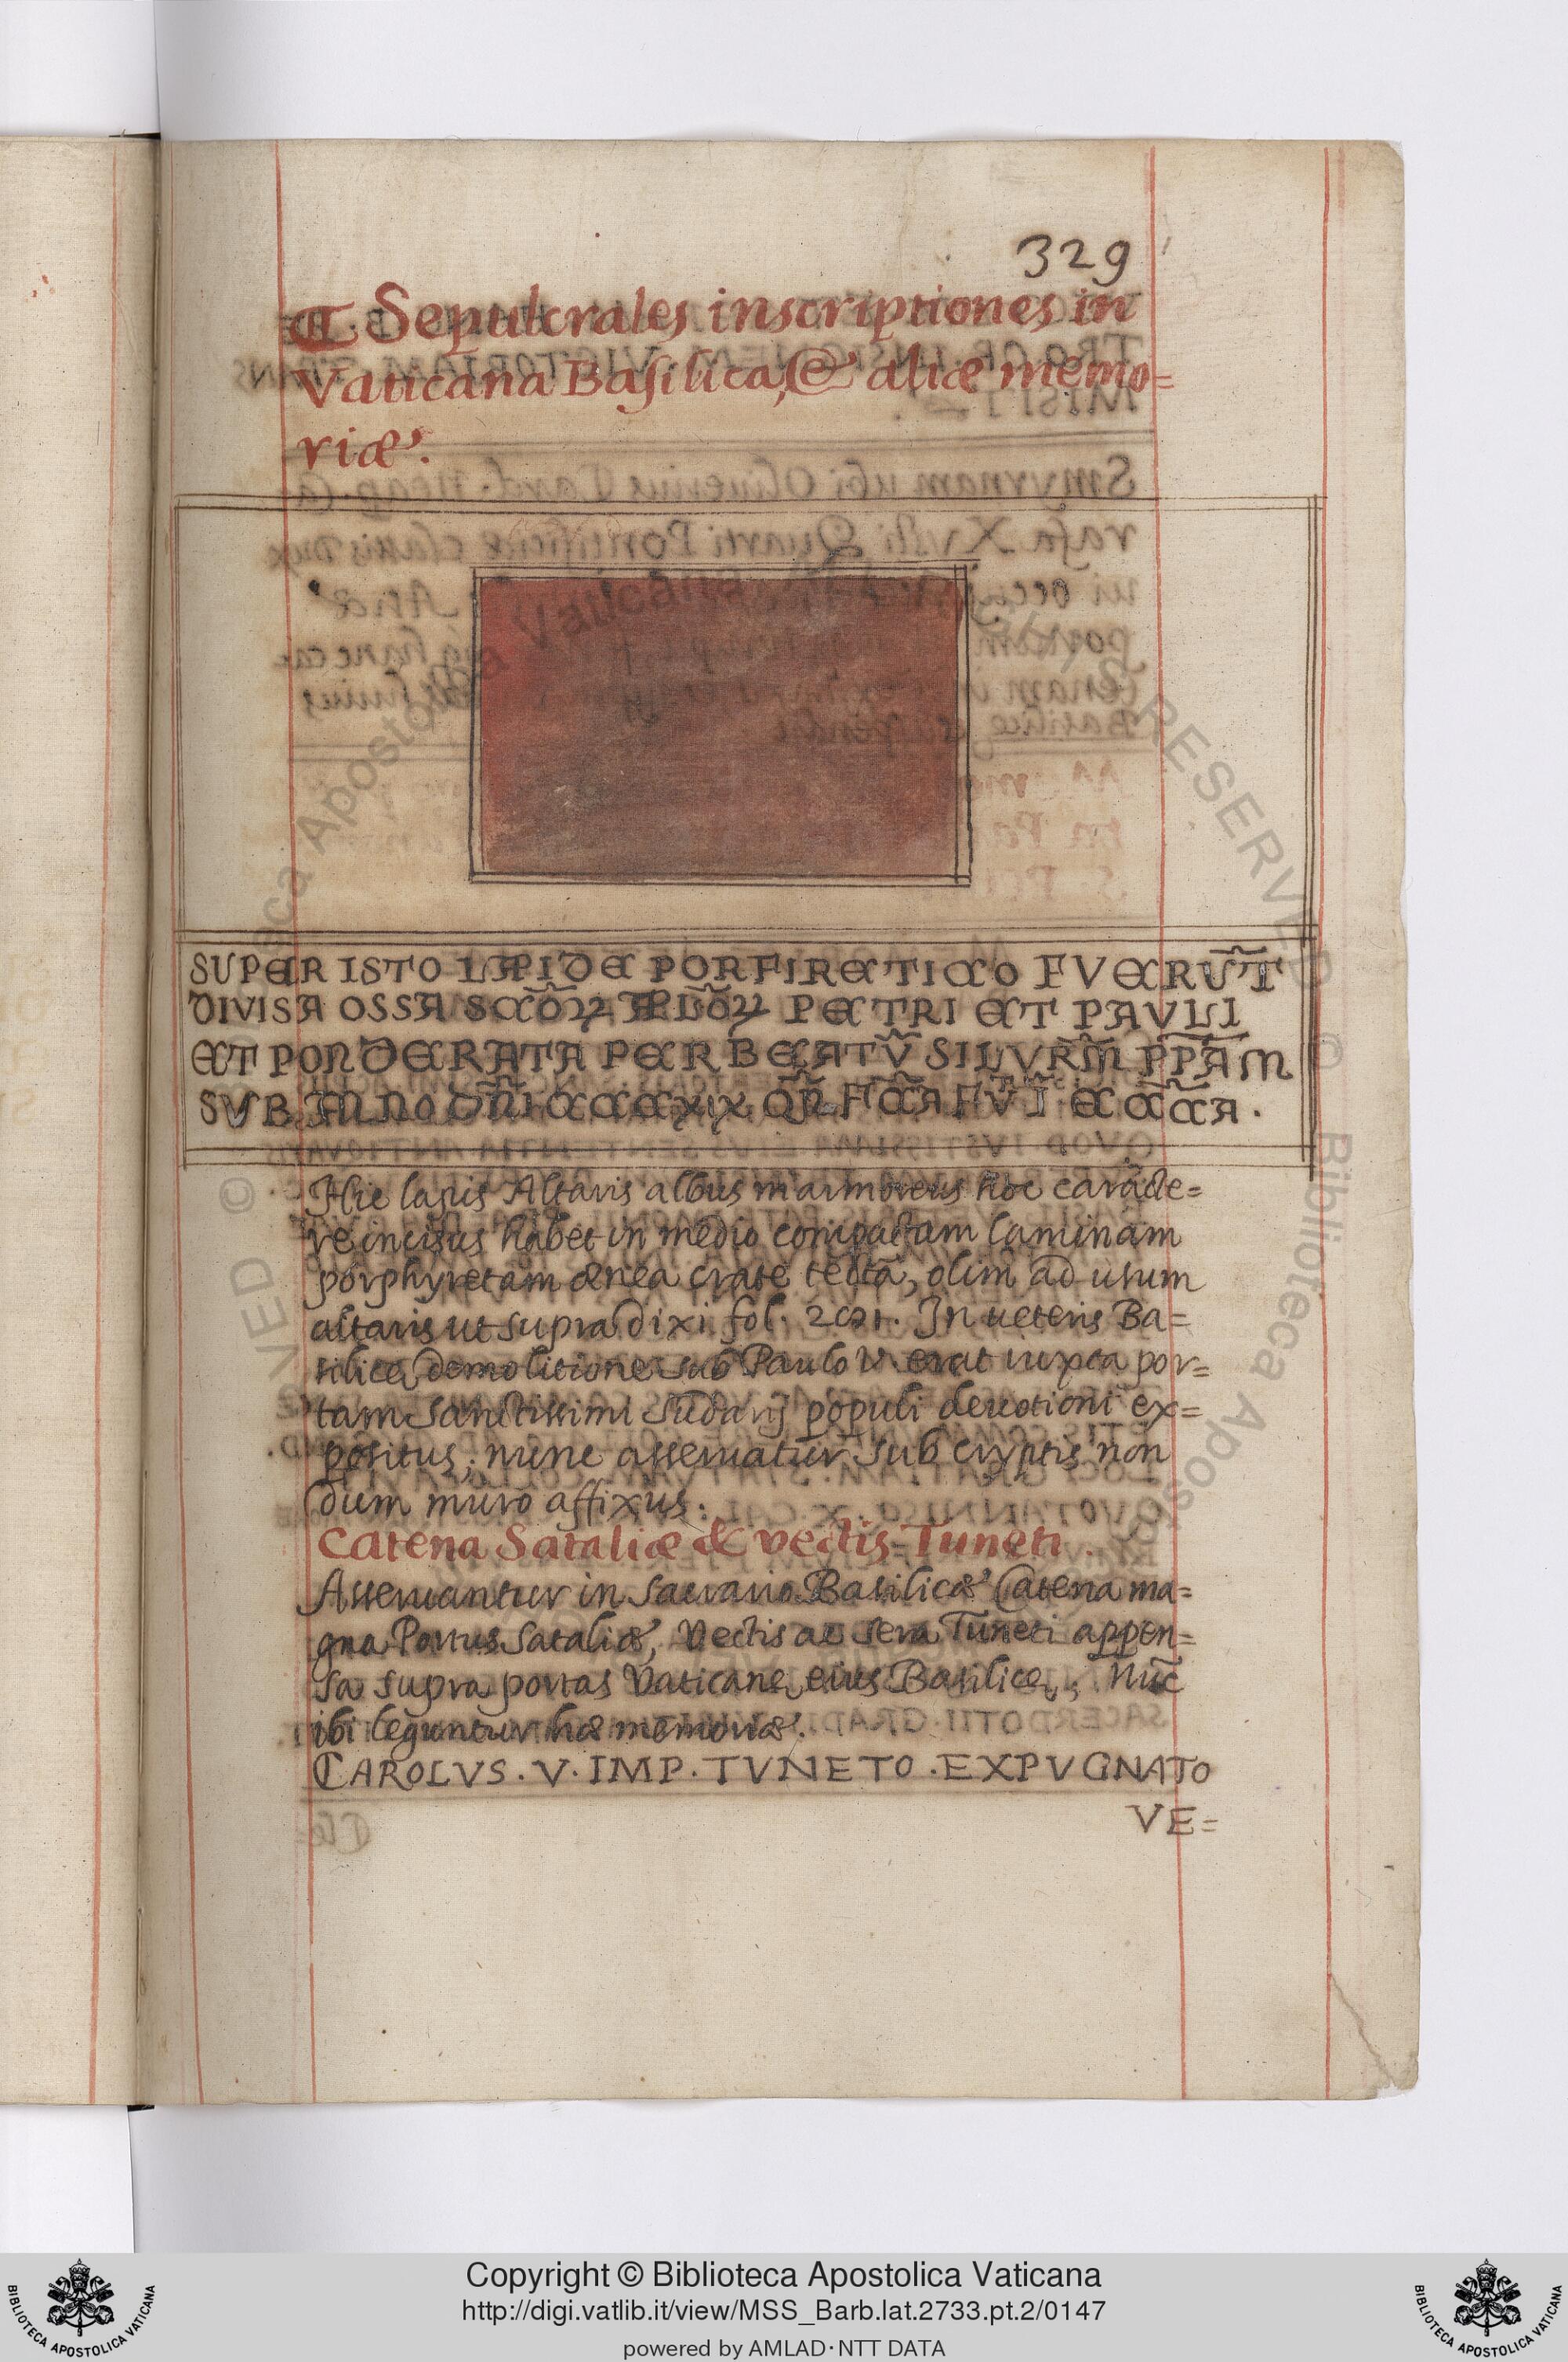 329
Sepulcrales inscriptiones in
Vaticana Basilica, & aliæ memo=
riæ.
SUPER ISTO LAPIDE PORFIRETICO FVERŪT
DIVISA OSSA SCŌꝜ APLŌꝜ PETRI ET PAVLI
ET PONDERATA PER BEATṼ SILVR̃M PPAM
SVB ANNO DÑI CCCXIX QÑ FCA FVIT ECCA.
Hic lapis Altaris albus marmoreus hoc caracte=
re incisus habet in medio compactam laminam
porphyretam ænea crate tectā, olim ad usum
altaris ut supra dixi fol. 221. In ueteris Ba=
silicę demolitione sub Paulo V. erat iuxta por=
tam Sanctissimi Sudarij populi deuotioni ex=
positus; nunc asseruatur sub cryptis non
dum muro affixus.
Catena Sataliæ & vectis Tuneti.
Asseruantur in sacrario Basilicæ Catena ma=
gna Portus Sataliæ, Vectis ac sera Tuneti appen=
sa supra portas Vaticanę eius Basilicę, Nūc
ibi leguntur hæ memoriæ.
CAROLVS . V . IMP . TVNETO . EXPVGNATO
VE=
Copyright © Biblioteca Apostolica Vaticana
http://digi.vatlib.it/view/MSS_Barb.lat.2733.pt.2/0147
powered by AMLAD · NTT DATA
BIBLIOTECA APOSTOLICA VATICANA
BIBLIOTECA APOSTOLICA VATICANA